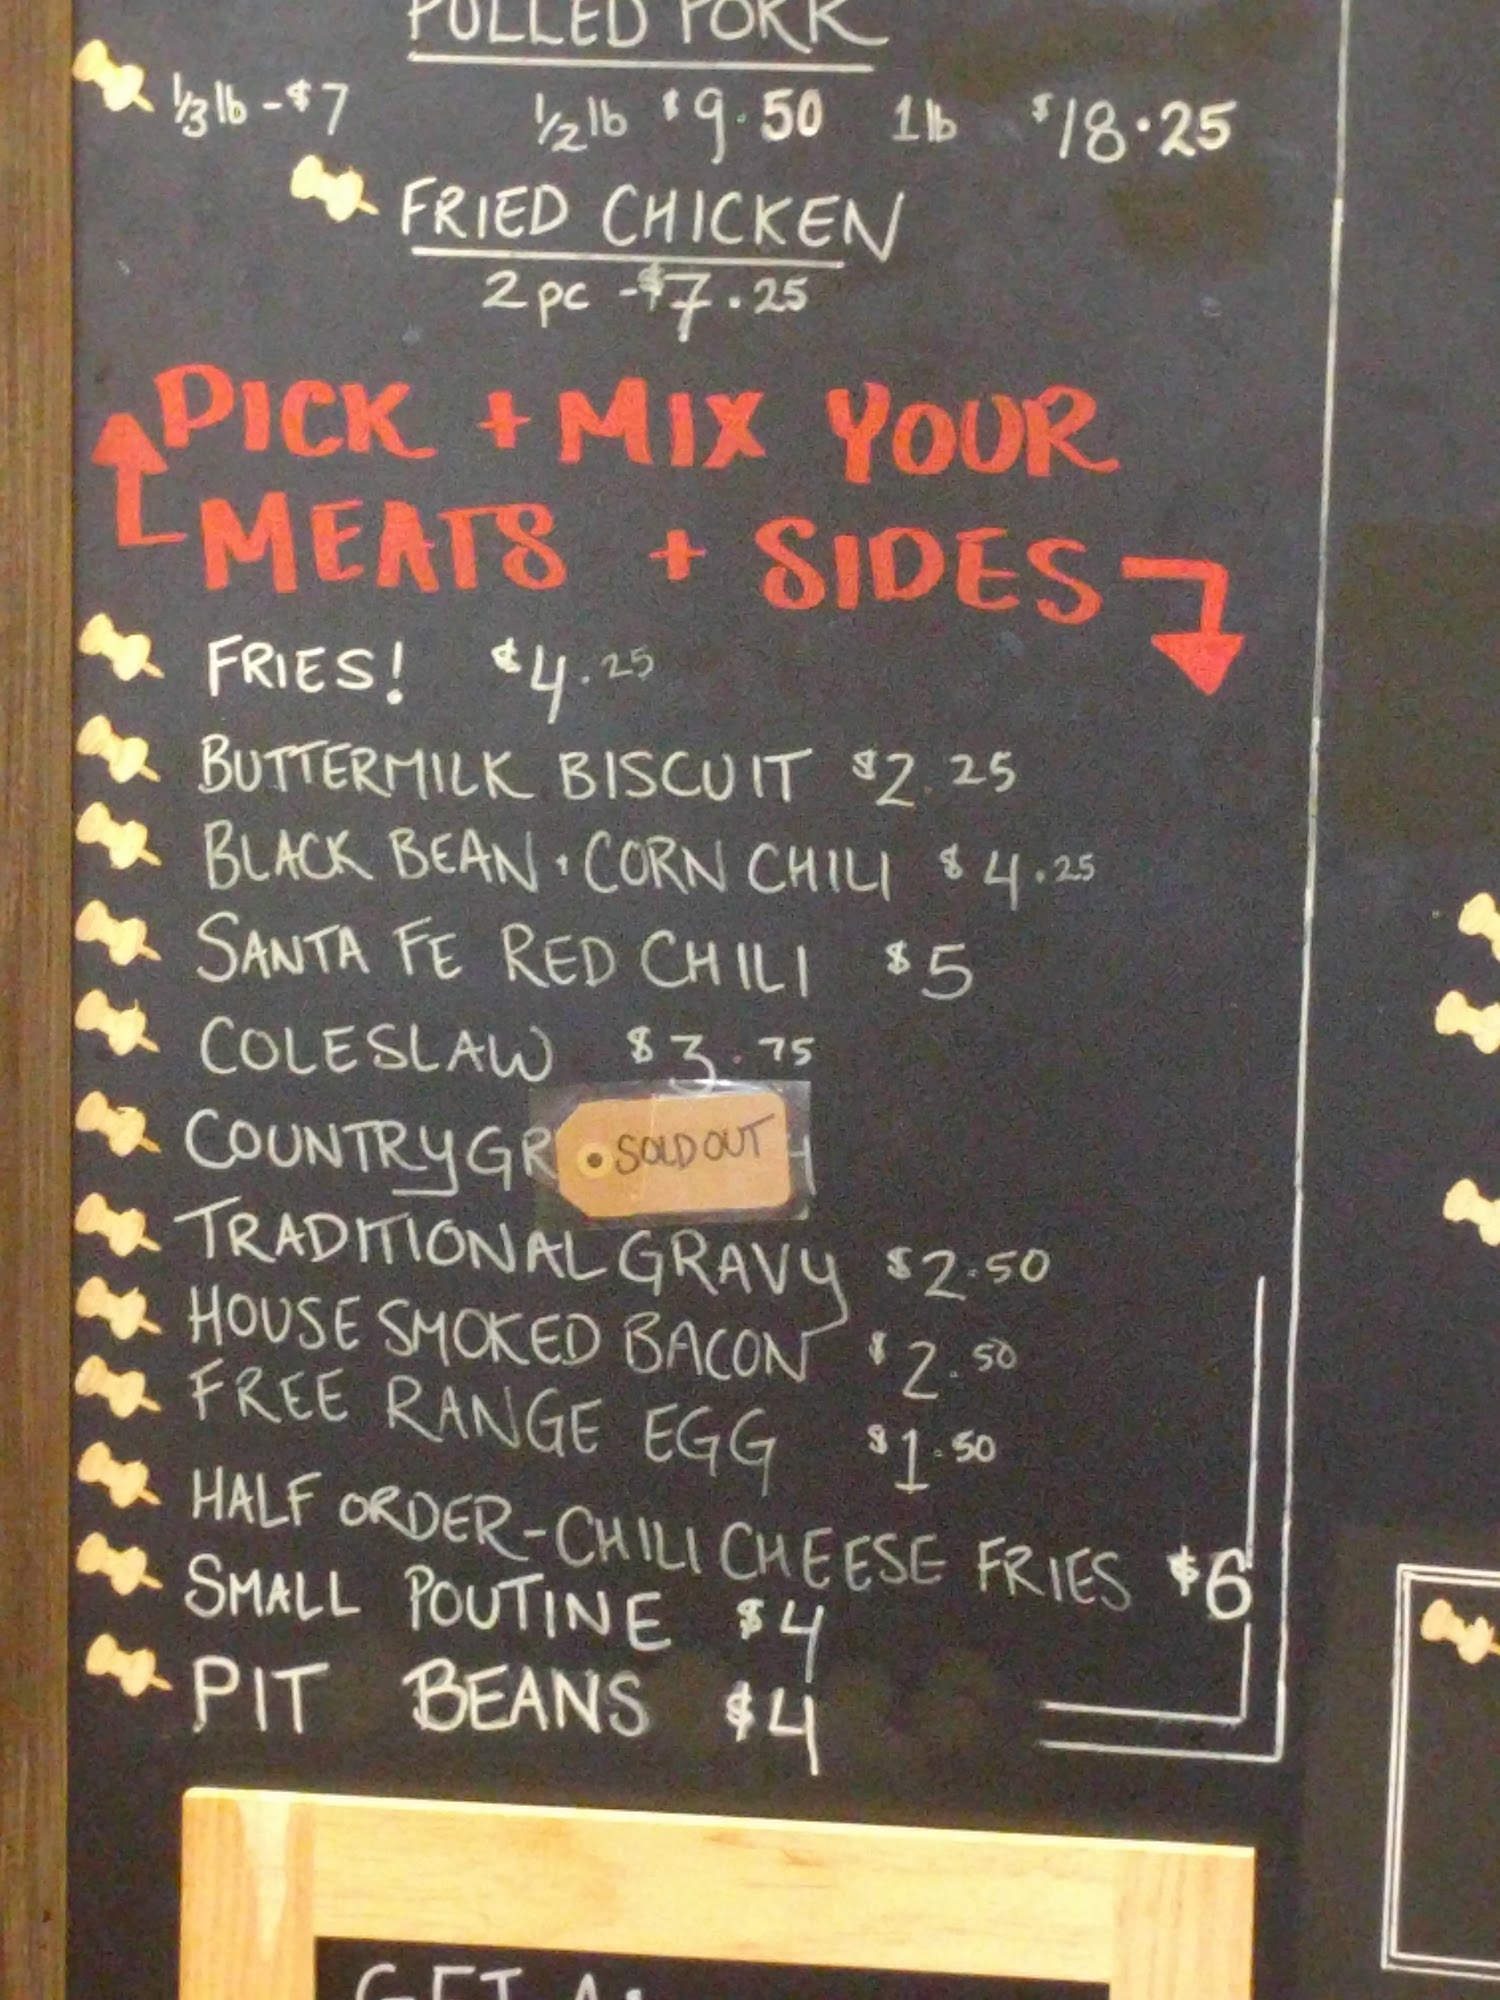 PULLED PORK
1/3 lb - $7 1/2 lb $9.50 1 lb $18.25
FRIED CHICKEN
2 pc - $7.25
PICK + MIX YOUR
MEATS + SIDES
FRIES! $4.25
BUTTERMILK BISCUIT $2.25
BLACK BEAN + CORN CHILI $4.25
SANTA FE RED CHILI $5
COLESLAW $3.75
COUNTRY SOLD OUT
TRADITIONAL GRAVY $2.50
HOUSE SMOKED BACON $2.50
FREE RANGE EGG $1.50
HALF ORDER - CHILI CHEESE FRIES $6
SMALL POUTINE $4
PIT BEANS $4
GET A